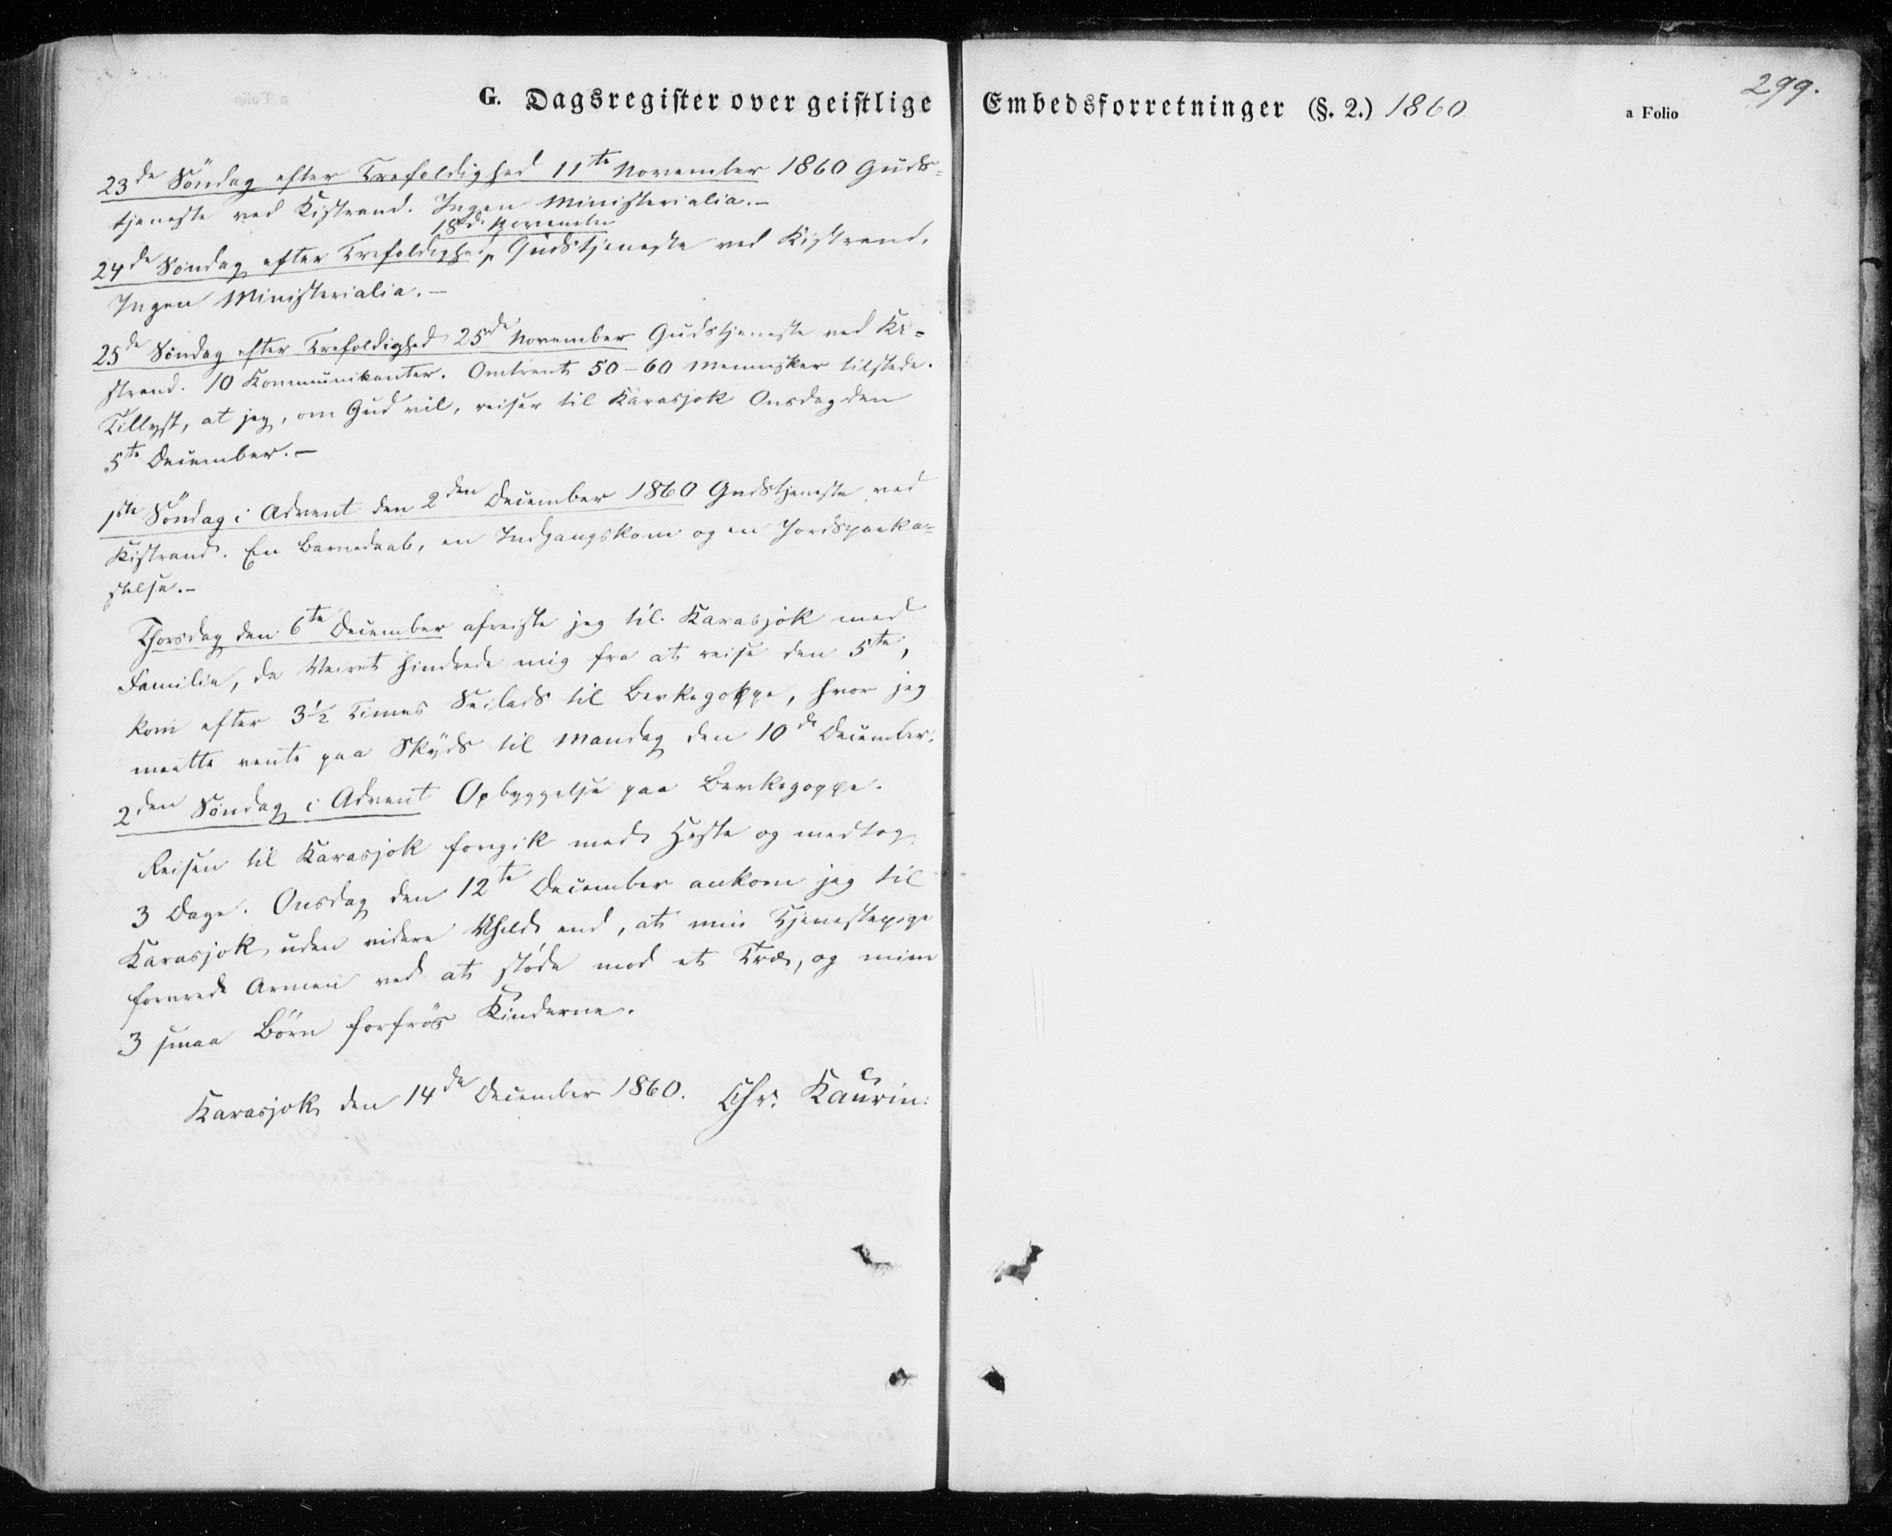 299.
G. Dagsregister over geistlige Embedsforretninger (§. 2.) 1860 a Folio
23de Söndag efter Trefoldighed 11te November 1860 Guds-
tjeneste ved Kistrand. Ingen Ministerialia.-
18de November
24de Söndag efter Trefoldighed, Gudstjeneste ved Kistrand.
Ingen Ministerialia.-
25de Söndag efter Trefoldighed 25de November Gudstjeneste ved Ki-
strand. 10 Kommunikanter. Omtrent 50-60 Mennesker tilstede.
Tillyst, at jeg, om Gud vil, reiser til Karasjok Onsdag den
5te December.-
1ste Söndag i Advent den 2den December 1860 Gudstjeneste ved
Kistrand. En Barnedaab, en Indgangskone og en Jordspaaka-
stelse.-
Thorsdag den 6te December afreiste jeg til Karasjok med
Familie, da Veiret hindrede mig fra at reise den 5te,
kom efter 3½ Times Seilads til Bevkegoppe, hvor jeg
maatte vente paa Skyds til Mandag den 10de December.
2den Söndag i Advent Opbyggelse paa Bevkegoppe.
Reisen til Karasjok foregik med Heste og medtog
3 Dage. Onsdag den 12te December ankom jeg til
Karasjok uden videre Uheld end, at min Tjenestepige
forvred Armen ved at støde mod et Træ, og mine
3 smaa Børn forfrös Kinderne.
Karasjok den 14de December 1860. Chr. Kaurin.